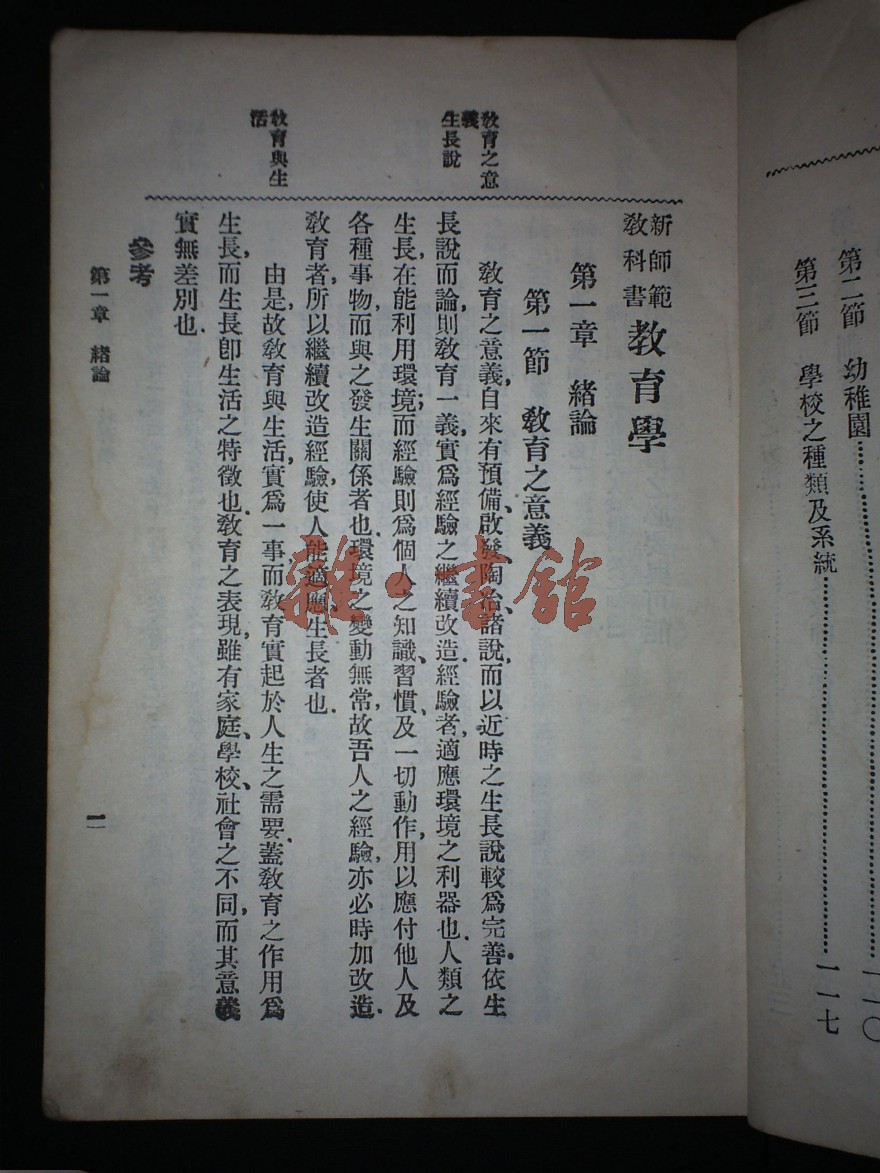 第二節　幼稚園……一一〇
第三節　學校之種類及系統……一一七
新師範
教科書
教育學
第一章　緒論
第一節　教育之意義
教育之意義
生長說
教育之意義，自來有預備、啟發、陶冶、諸說，而以近時之生長說較爲完善。依生
長說而論，則教育一義，實爲經驗之繼續改造．經驗者，適應環境之利器也．人類之
生長，在能利用環境；而經驗則爲個人之知識、習慣、及一切動作，用以應付他人及
各種事物，而與之發生關係者也．環境之變動無常，故吾人之經驗，亦必時加改造．
教育者，所以繼續改造經驗，使人能適應生長者也．
教育與生
活
由是，故教育與生活，實爲一事，而教育實起於人生之需要．蓋教育之作用爲
生長，而生長卽生活之特徵也．教育之表現，雖有家庭、學校、社會之不同，而其意義
實無差別也．
參考
第一章　緒論
一
雜·書館